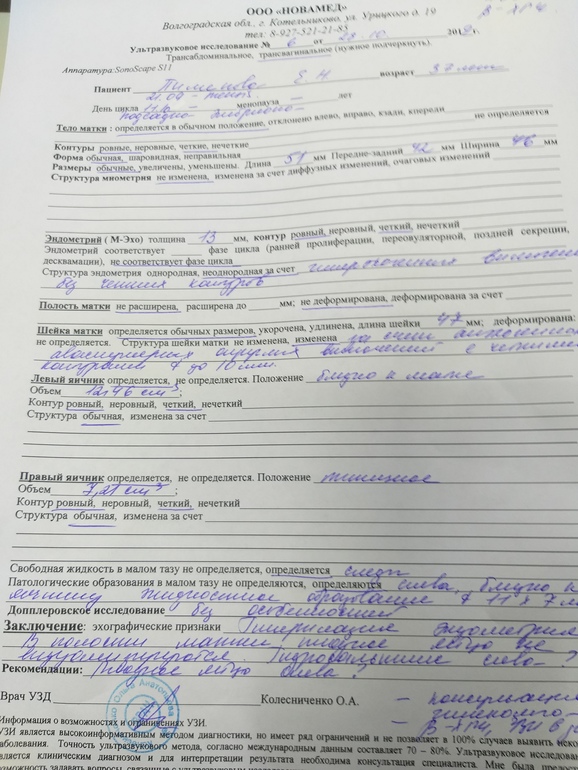 ООО «НОВАМЕД»
Волгоградская обл., г. Котельниково, ул. Урицкого д. 19
тел: 8-927-521-21-85
В - ХГЧ
Ультразвуковое исследование № 6 от 28 10 201
Трансабдоминальное, трансвагинальное (нужное подчеркнуть).
Аппаратура:SonoScape S11
Пациент Е Н возраст 37 лет
День цикла менопауза лет
Тело матки : определяется в обычном положение, отклонено влево, вправо, кзади, кпереди не определяется
Контуры ровные, неровные, четкие, нечеткие
Форма обычная, шаровидная, неправильная
Размеры обычные, увеличены, уменьшены. Длина 51 мм Передне-задний 42 мм Ширина 46 мм
Структура миометрия не изменена, изменена за счет диффузных изменений, очаговых изменений
Эндометрий ( М-Эхо) толщина 13 мм, контур ровный, неровный, четкий, нечеткий
Эндометрий соответствует фазе цикла (ранней пролиферации, переовуляторной, поздней секреции,
десквамации), не соответствует фазе цикла
Структура эндометрия однородная, неоднородная за счет гиперэхогенных включений
без четких контуров
Полость матки не расширена, расширена до мм; не деформирована, деформирована за счет
Шейка матки определяется обычных размеров, укорочена, удлинена, длина шейки 47 мм; деформирована:
не определяется. Структура шейки матки не изменена, изменена за счет анэхогенных
аваскулярных округлых включений с четкими
контурами d до 10 мм.
Левый яичник определяется, не определяется. Положение близко к матке
Объем 12,46 см³;
Контур ровный, неровный, четкий, нечеткий
Структура обычная, изменена за счет
Правый яичник определяется, не определяется. Положение типичное
Объем 7,21 см³ ;
Контур ровный, неровный, четкий, нечеткий
Структура обычная, изменена за счет
Свободная жидкость в малом тазу не определяется, определяется следы
Патологические образования в малом тазу не определяются, определяются слева, близко к
яичнику жидкостное образование d 11 х 7 мм
Допплеровское исследование без особенностей
Заключение: эхографические признаки Гиперплазия эндометрия
В полости матки плодное яйцо не
визуализируется Гидросальпинкс слева ?
Рекомендации: Плодное яйцо слева ?
Врач УЗД Колесниченко О.А.
- консультация
гинеколога
- В-ХГЧ УЗИ в
Информация о возможностях и ограничениях УЗИ.
УЗИ является высокоинформативным методом диагностики, но имеет ряд ограничений и не позволяет в 100% случаев выявить
заболевания. Точность ультразвукового метода, согласно международным данным составляет 70 – 80%. Ультразвуковое
является клиническим диагнозом и для интерпретации результата необходима консультация специалиста. Мне была